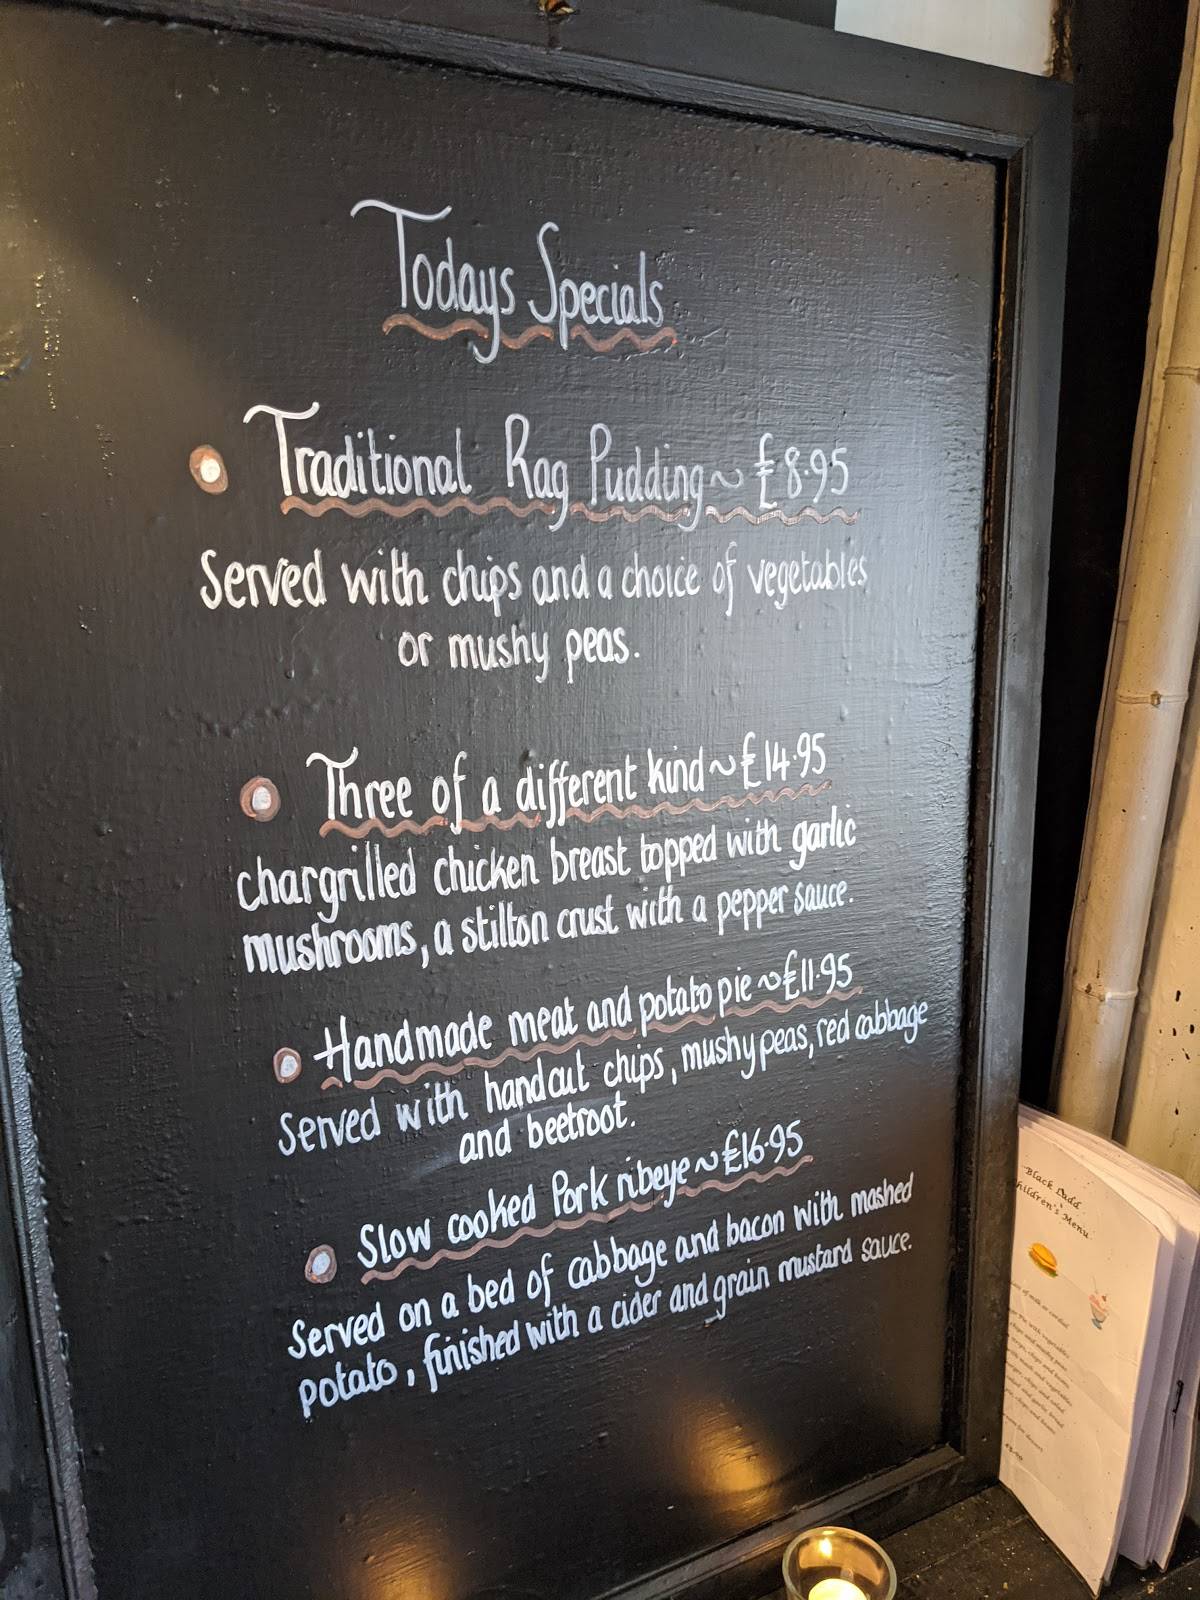 Todays Specials
Traditional Rag Pudding ~ £8.95
Served with chips and a choice of vegetables
or mushy peas.
Three of a different kind ~ £14.95
chargrilled chicken breast topped with garlic
mushrooms, a stilton crust with a pepper sauce.
Handmade meat and potato pie ~ £11.95
Served with handcut chips, mushy peas, red cabbage
and beetroot.
Slow cooked Pork ribeye ~ £16.95
Served on a bed of cabbage and bacon with mashed
potato, finished with a cider and grain mustard sauce.
Black Ladd
hildren's Menu